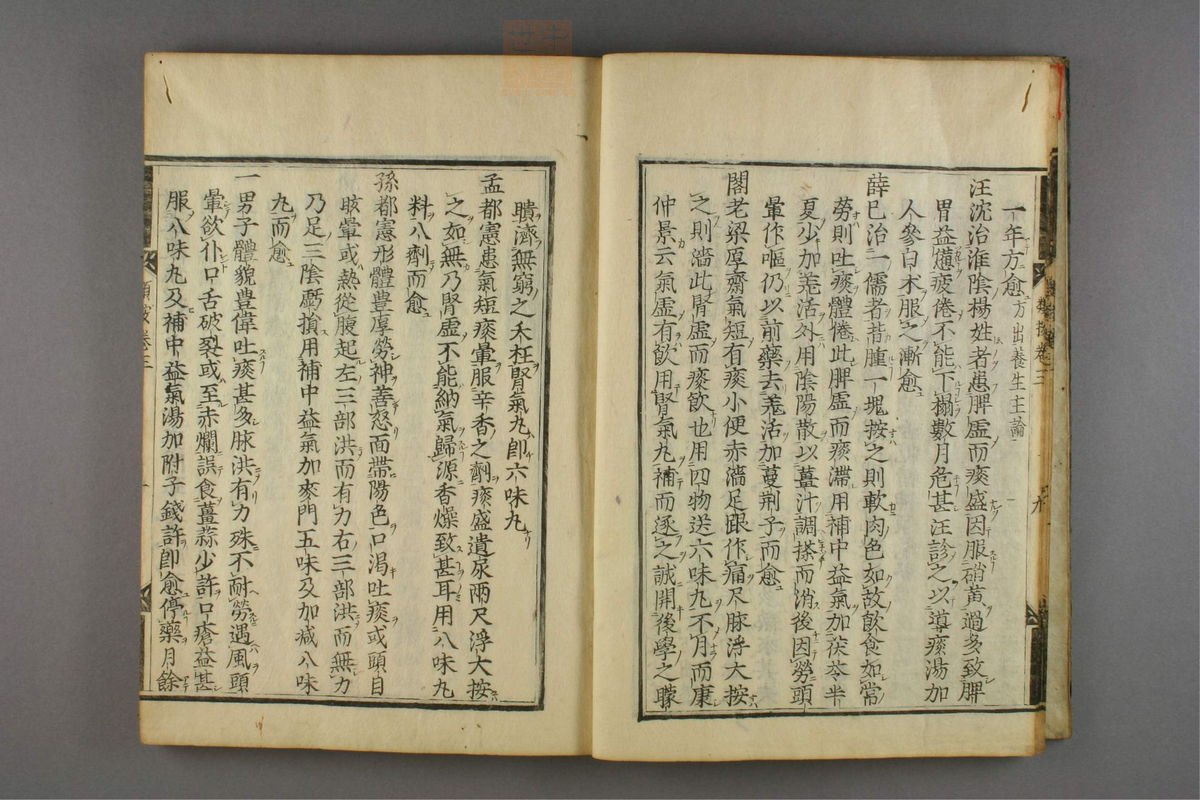 一年方愈方出養生主論
汪沈治淮陰楊姓者患脾虛而痰盛因服硝黃過多致脾
胃益憊疲倦不能下榻數月危甚汪診之以導痰湯加
人參白朮服之漸愈
薛已治一儒者背腫一塊按之則軟肉色如故飲食如常
勞則吐痰體倦此脾虛而痰滯用補中益氣加茯苓半
夏少加羗活外用陰陽散以薑汁調搽而消後因勞頭
暈作嘔仍以前藥去羗活加蔓荆子而愈
閣老梁厚齋氣短有痰小便赤濇足跟作痛尺脉浮大按
之則濇此腎虛而痰飲也用四物送六味丸不月而康
仲景云氣虛有飲用腎氣丸補而逐之誠開後學之矇
聵濟無窮之夭枉腎氣丸卽六味丸
孟都憲患氣短痰暈服辛香之劑痰盛遺尿兩尺浮大按
之如無乃腎虛不能納氣歸源香燥致甚耳用八味丸
料八劑而愈
孫都憲形體豊厚勞神善怒面帶陽色口渴吐痰或頭目
眩暈或熱從腹起左三部洪而有力右三部洪而無力
乃足三陰虧損用補中益氣加麥門五味及加减八味
丸而愈
一男子體貌豊偉吐痰甚多脉洪有力殊不耐勞遇風頭
暈欲仆口舌破裂或至赤爛誤食薑蒜少許口瘡益甚
服八味丸及補中益氣湯加附子錢許卽愈停藥月餘